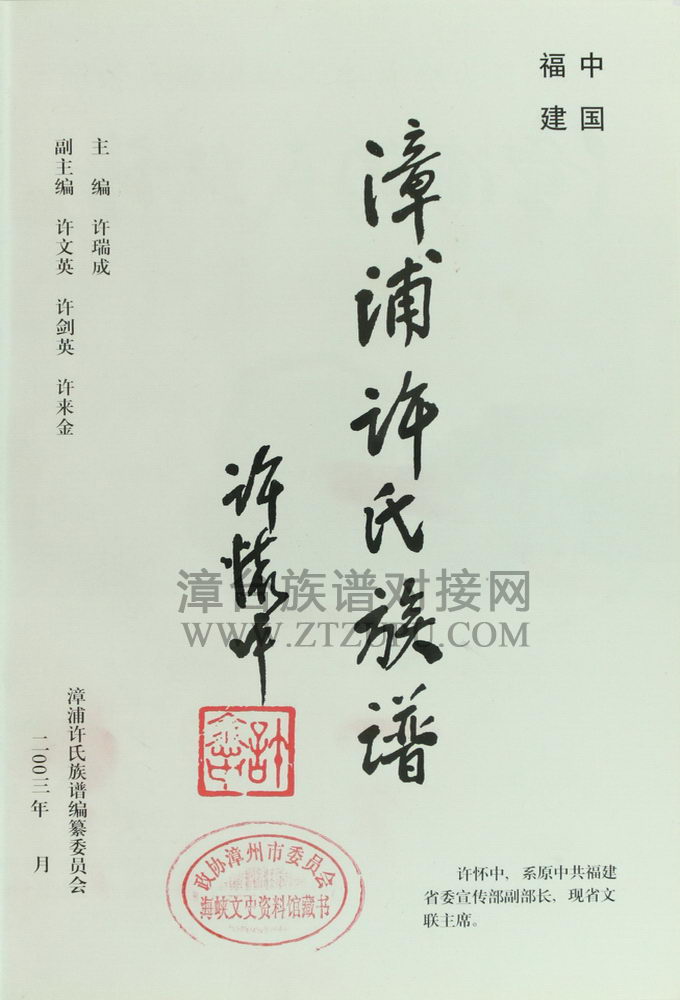 中国
福建
漳浦许氏族谱
许怀中
主编 许瑞成
副主编 许文英 许剑英 许来金
漳浦许氏族谱编纂委员会
二00三年 月
政协漳州市委员会
海峡文史资料馆藏书
许怀中，系原中共福建
省委宣传部副部长，现省文
联主席。
漳台族谱对接网